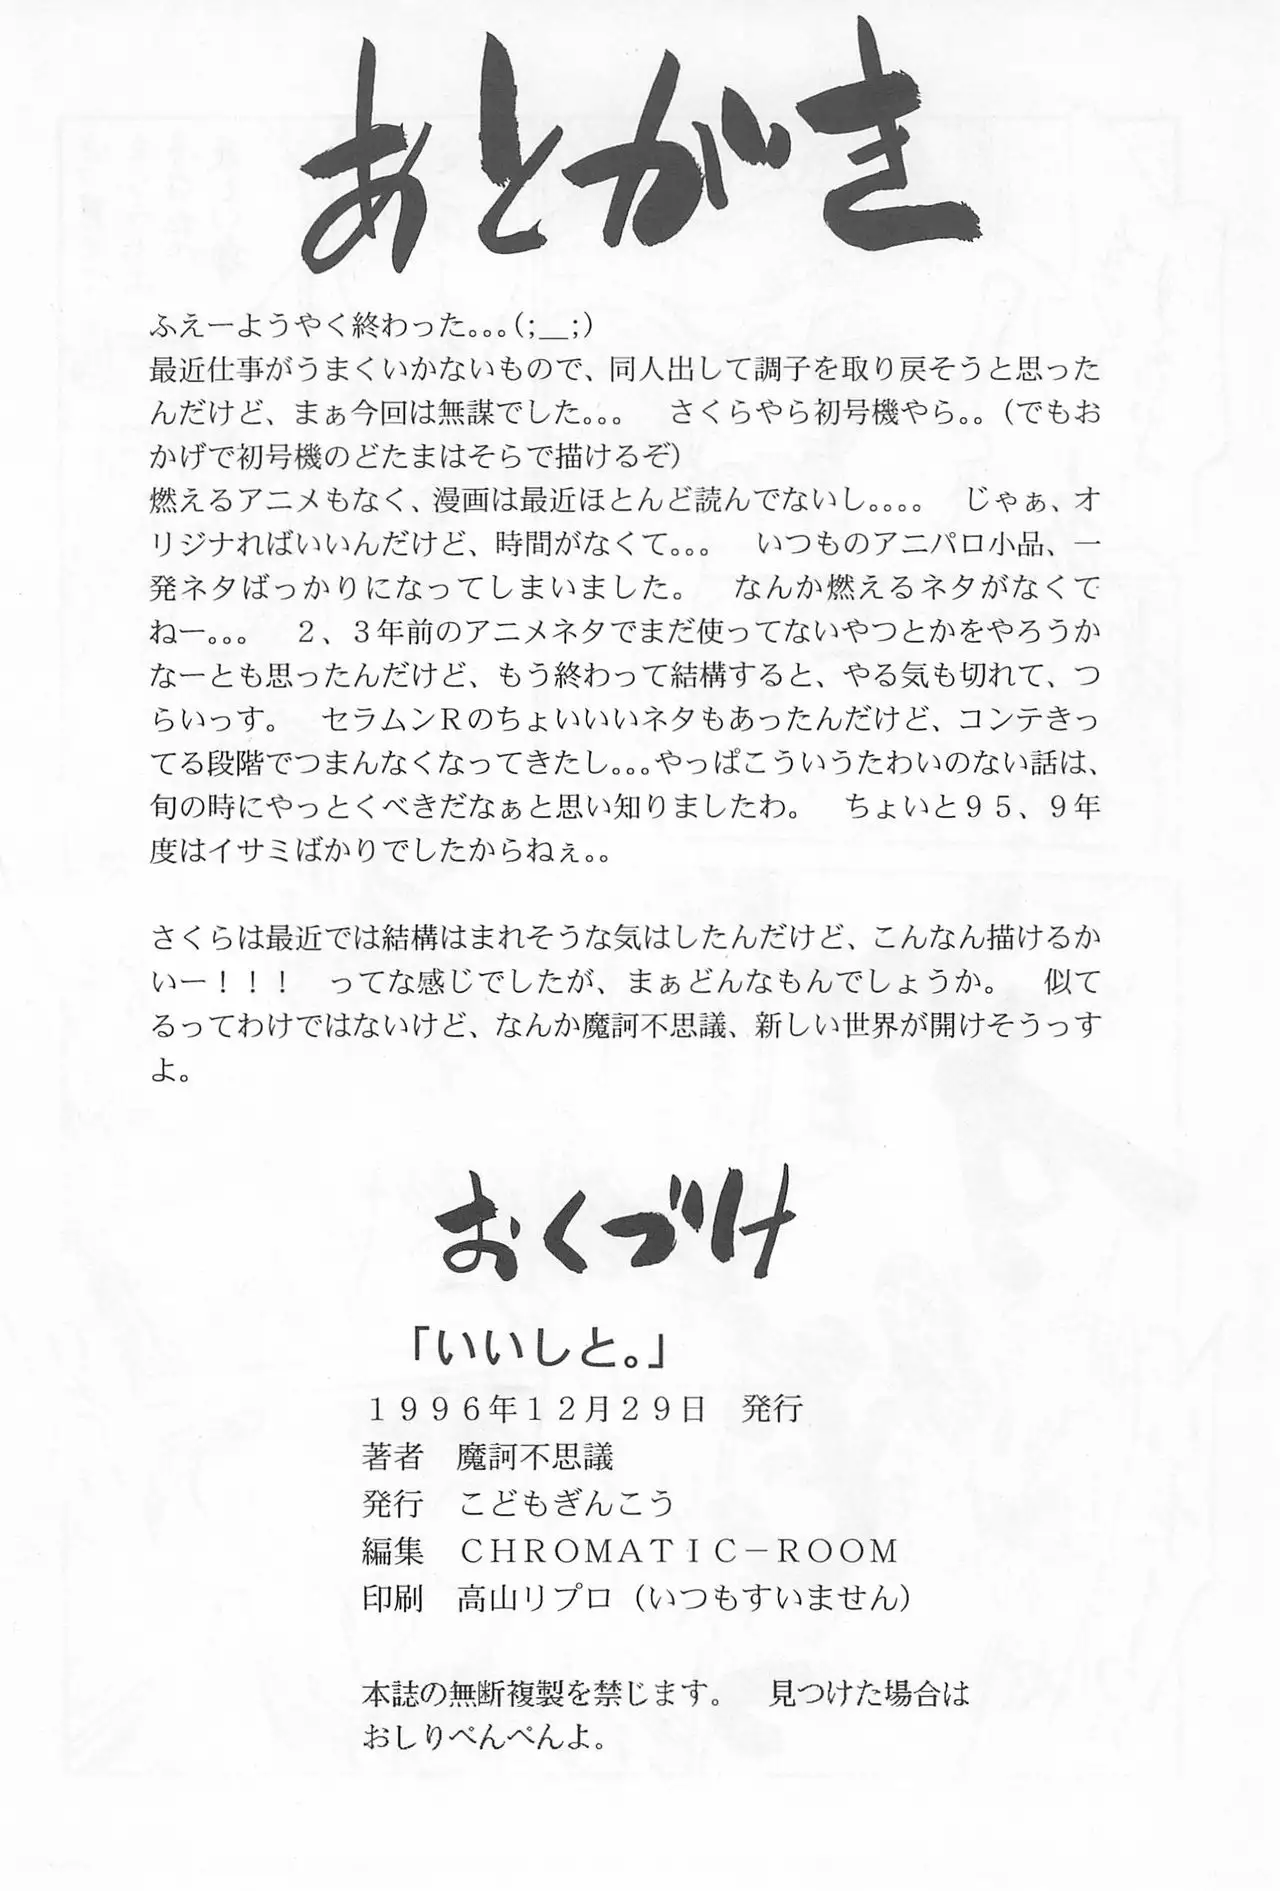 あとがき
ふえーようやく終わった｡｡｡(;＿;)
最近仕事がうまくいかないもので、同人出して調子を取り戻そうと思った
んだけど、まぁ今回は無謀でした｡｡｡　さくらやら初号機やら｡｡（でもお
かげで初号機のどたまはそらで描けるぞ）
燃えるアニメもなく、漫画は最近ほとんど読んでないし｡｡｡｡　じゃぁ、オ
リジナればいいんだけど、時間がなくて｡｡｡　いつものアニパロ小品、一
発ネタばっかりになってしまいました。　なんか燃えるネタがなくで
ねー｡｡｡　２、３年前のアニメネタでまだ使ってないやつとかをやろうか
なーとも思ったんだけど、もう終わって結構すると、やる気も切れて、つ
らいっす。　セラムンＲのちょいいいネタもあったんだけど、コンテきっ
てる段階でつまんなくなってきたし｡｡｡やっぱこういうたわいのない話は、
旬の時にやっとくべきだなぁと思い知りましたわ。　ちょいと９５、９年
度はイサミばかりでしたからねぇ｡｡
さくらは最近では結構はまれそうな気はしたんだけど、こんなん描けるか
いー！！！　ってな感じでしたが、まぁどんなもんでしょうか。　似て
るってわけではないけど、なんか魔訶不思議、新しい世界が開けそうっす
よ。
おくづけ
「いいしと。」
１９９６年１２月２９日　発行
著者　魔訶不思議
発行　こどもぎんこう
編集　ＣＨＲＯＭＡＴＩＣ－ＲＯＯＭ
印刷　高山リプロ（いつもすいません）
本誌の無断複製を禁じます。　見つけた場合は
おしりぺんぺんよ。